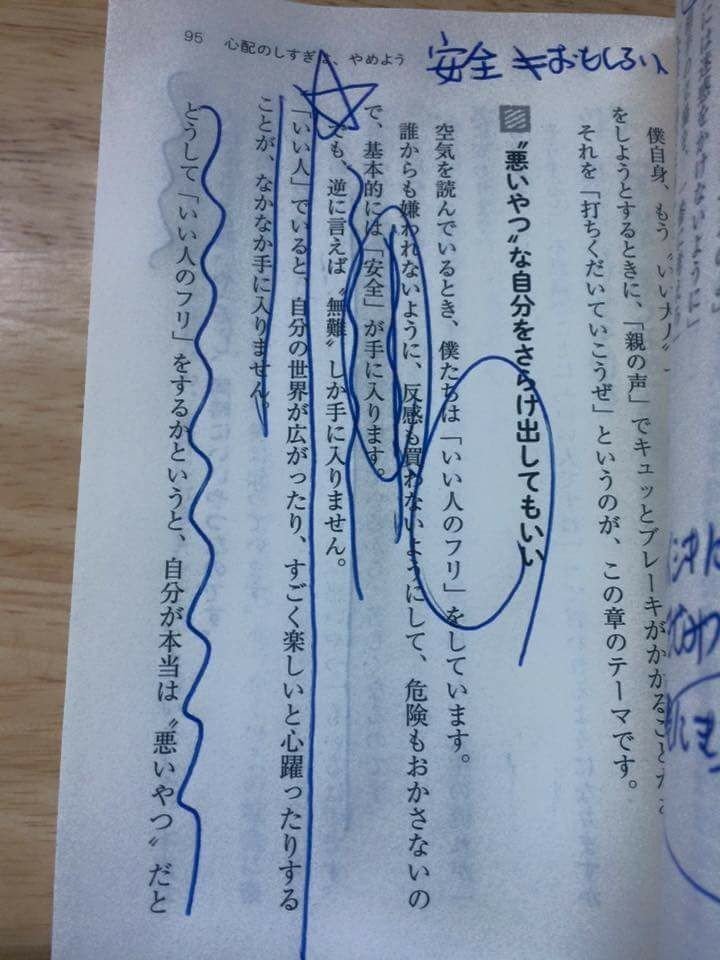 95 心配のしすぎは、やめよう
安全≠おもしろい
僕自身、もう〝いい人〟
をしようとするときに、「親の声」でキュッとブレーキがかかること
それを「打ちくだいていこうぜ」というのが、この章のテーマです。
〝悪いやつ〟な自分をさらけ出してもいい
空気を読んでいるとき、僕たちは「いい人のフリ」をしています。
誰からも嫌われないように、反感も買わないようにして、危険もおかさないの
で、基本的には「安全」が手に入ります。
でも、逆に言えば〝無難〟しか手に入りません。
「いい人」でいると、自分の世界が広がったり、すごく楽しいと心躍ったりする
ことが、なかなか手に入りません。
どうして「いい人のフリ」をするかというと、自分が本当は〝悪いやつ〟だと